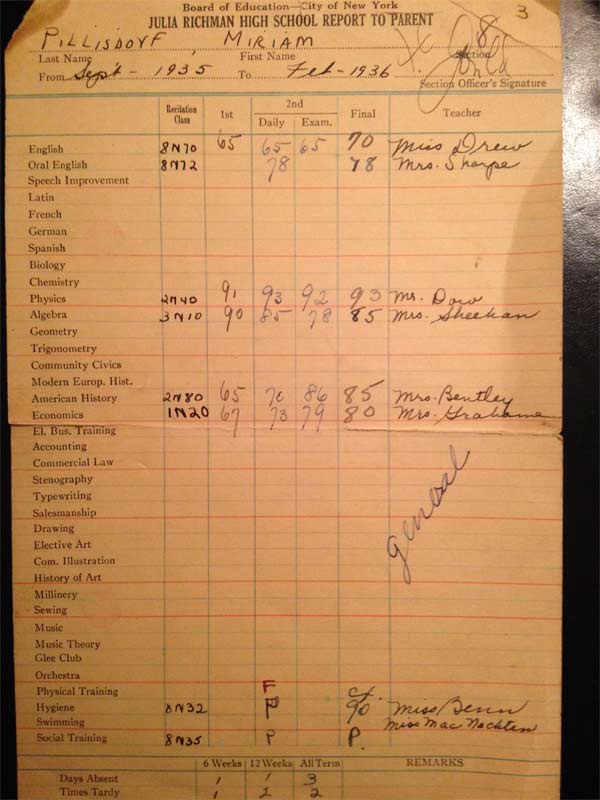 Board of Education—City of New York 3
JULIA RICHMAN HIGH SCHOOL REPORT TO PARENT
PILLISDORF, MIRIAM 8
Last Name First Name Section
From Sept - 1935 To Feb - 1936
Section Officer's Signature
Recitation Class 1st 2nd Daily Exam. Final Teacher
English 8N70 65 65 65 70 Miss Drew
Oral English 8N72 78 78 Mrs. Sharpe
Speech Improvement
Latin
French
German
Spanish
Biology
Chemistry
Physics 2N40 91 93 92 93 Mr. Dow
Algebra 3N10 90 85 78 85 Mrs. Sheehan
Geometry
Trigonometry
Community Civics
Modern Europ. Hist.
American History 2N80 65 70 86 85 Mrs. Bentley
Economics 1N20 67 73 79 80 Mrs. Grahame
El. Bus. Training
Accounting
Commercial Law
Stenography
Typewriting
Salesmanship
Drawing
Elective Art
Com. Illustration
History of Art
Millinery
Sewing
general
Music
Music Theory
Glee Club
Orchestra
Physical Training F
Hygiene 8N32 P 90 Miss Benn
Swimming Miss MacNochten
Social Training 8N35 P P.
6 Weeks 12 Weeks All Term REMARKS
Days Absent 1 1 3
Times Tardy 1 2 2